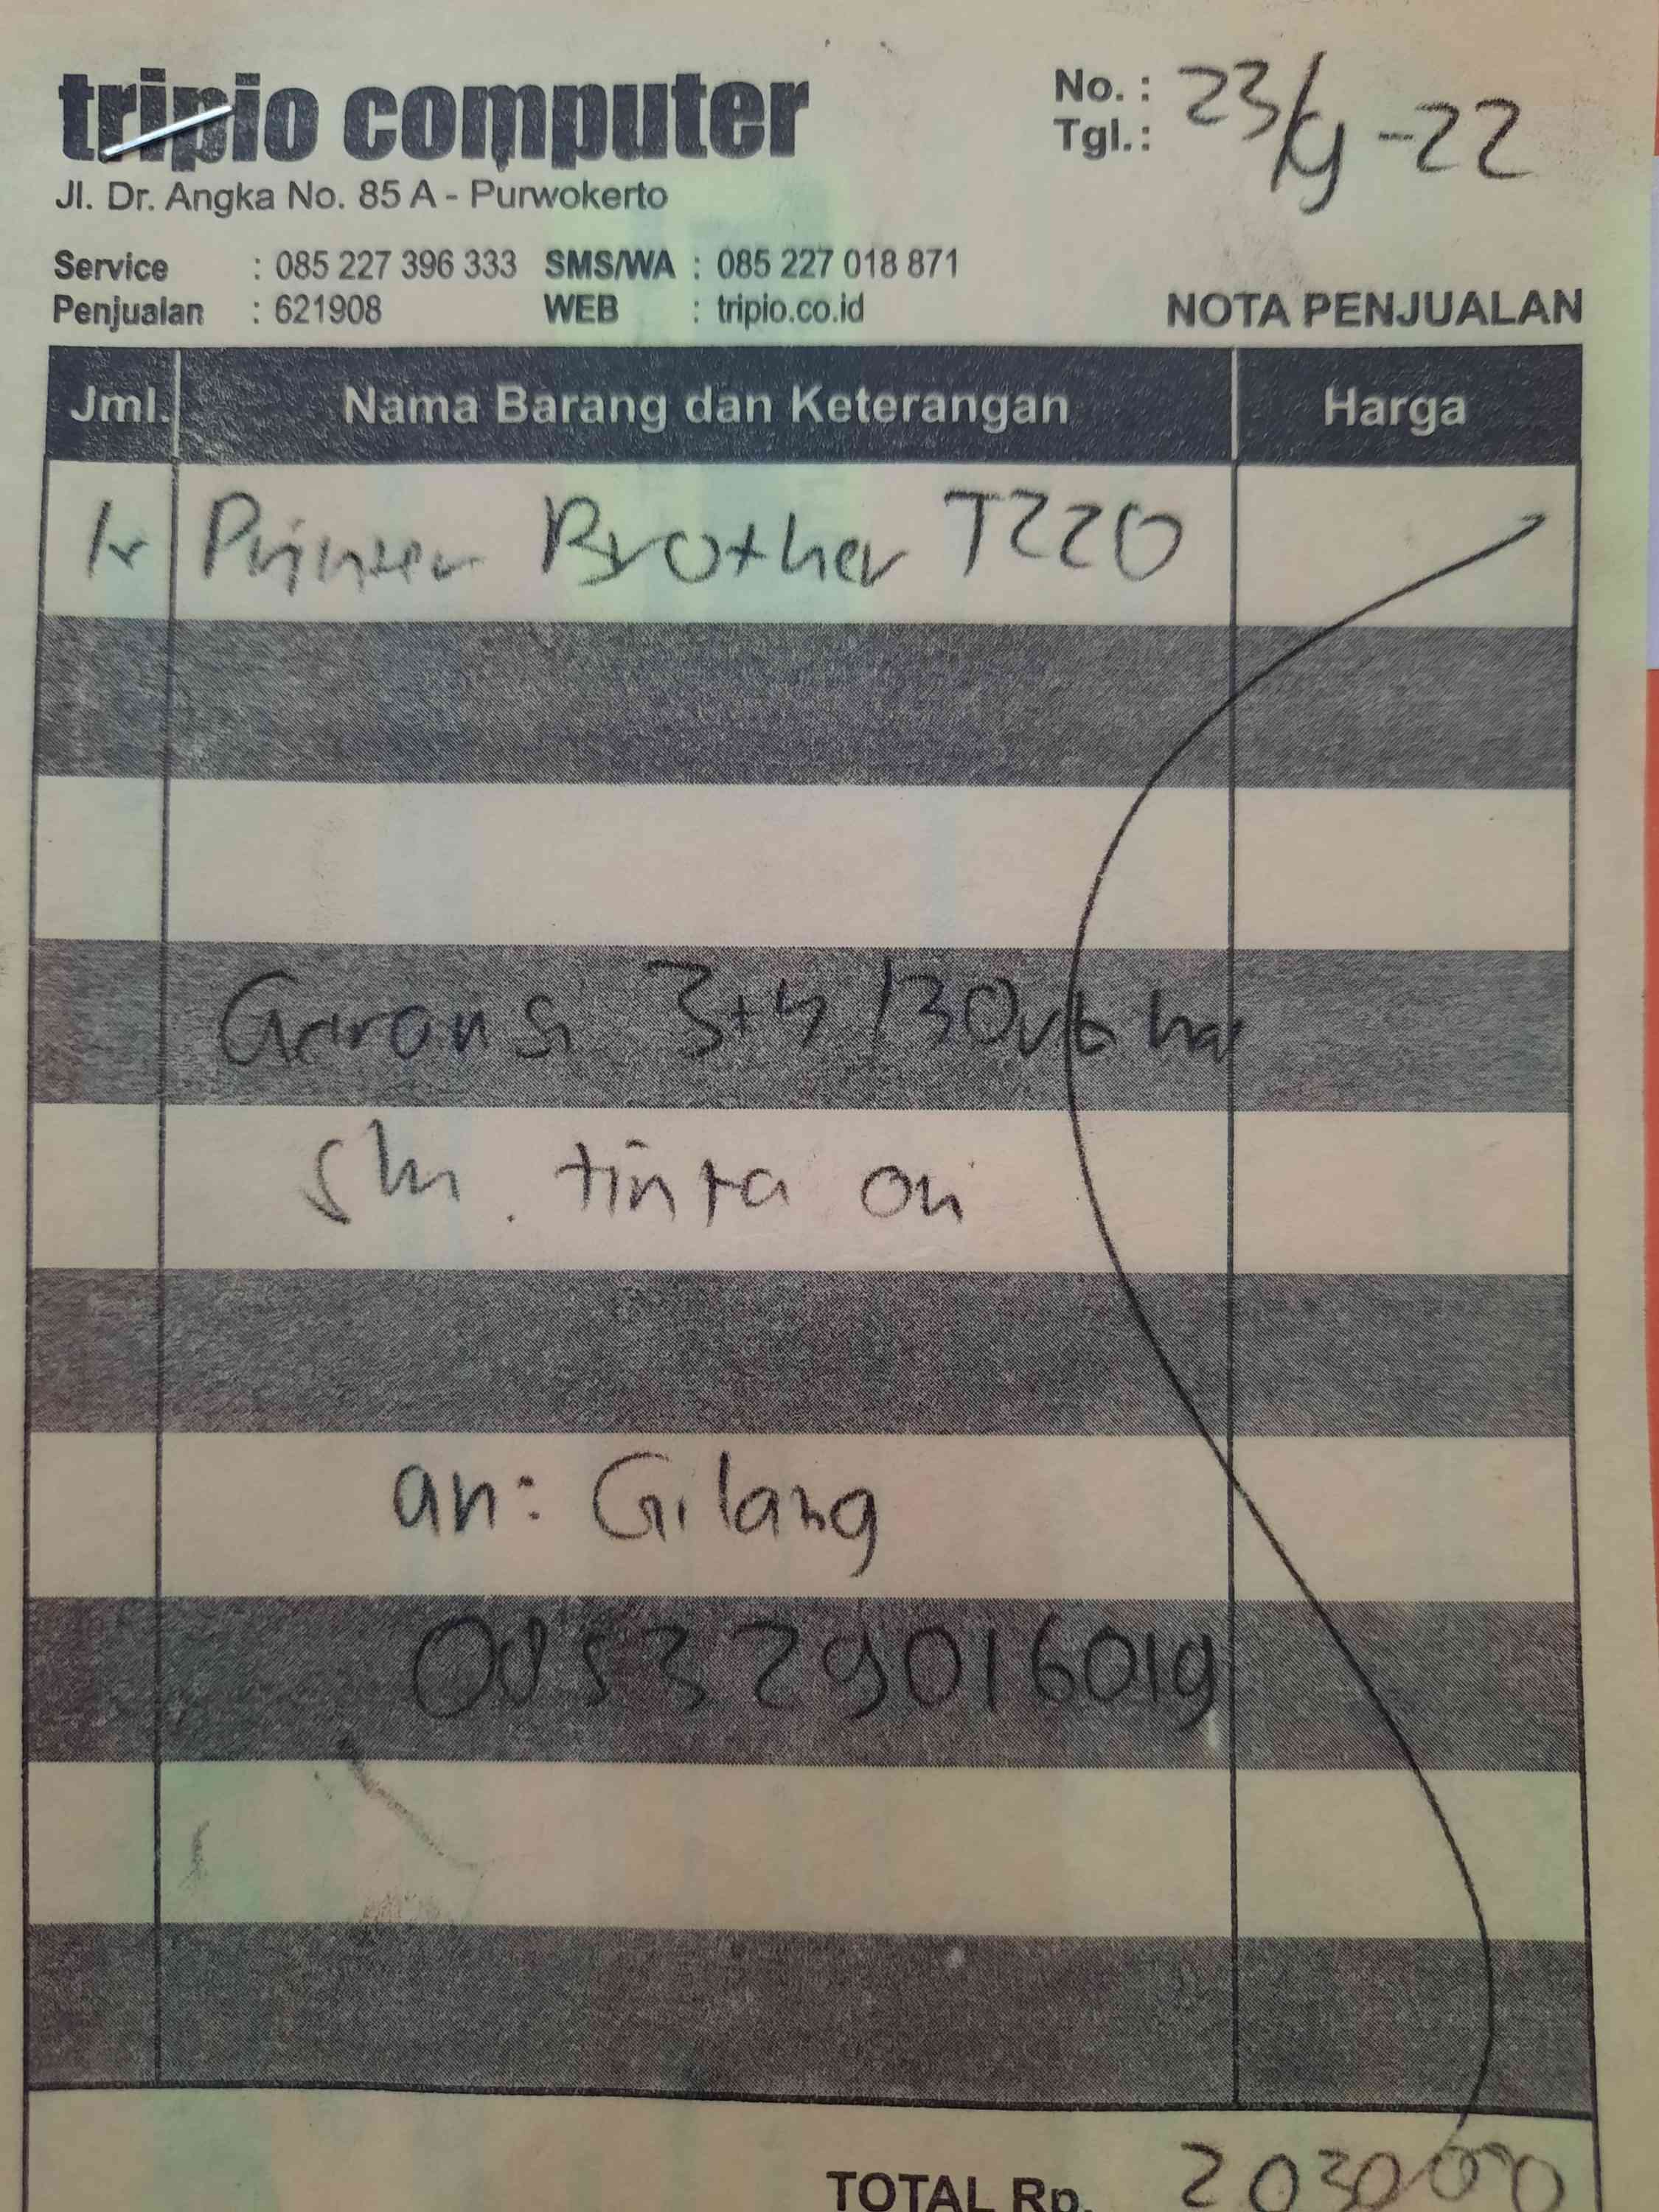 tripio computer
Jl. Dr. Angka No. 85 A - Purwokerto
No. :
Tgl. : 23/9-22
Service : 085 227 396 333 SMS/WA : 085 227 018 871
Penjualan : 621908 WEB : tripio.co.id
NOTA PENJUALAN
Jml. Nama Barang dan Keterangan Harga
1x Printer Brother T220
Garansi 3+4 /30
tinta ori
an: Gilang
085329016019
TOTAL Rp. 2030000